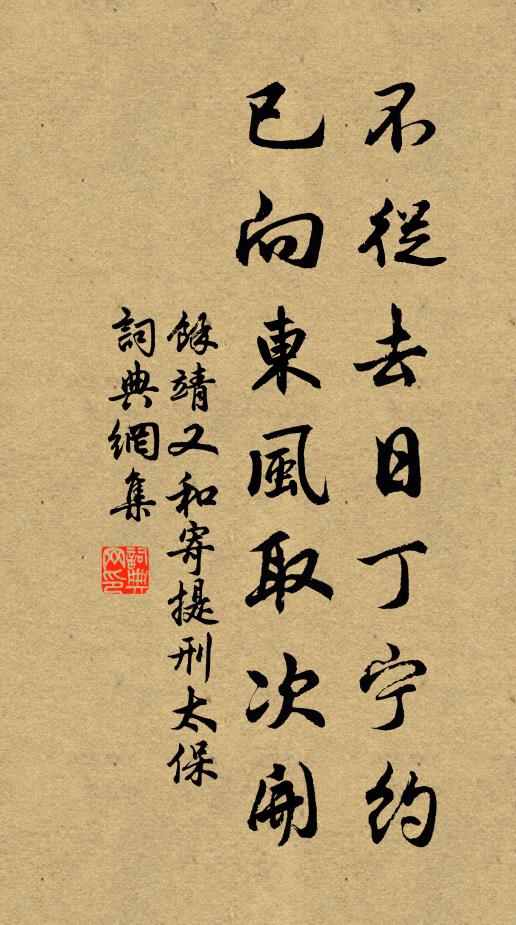 不從去日丁宁約
已向東風取次開
餘靖又和寄提刑太保
詞典網集
詞典網印